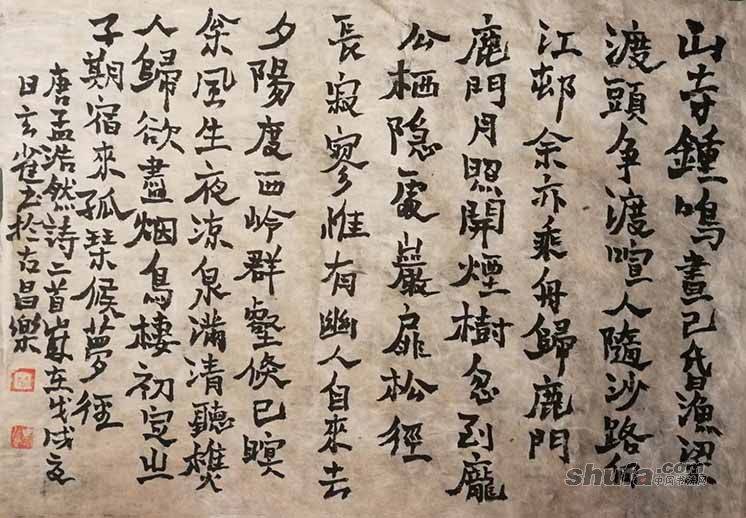 山寺鍾鳴晝已昏漁梁
渡頭争渡喧人隨沙路向
江邨余亦乘舟歸鹿門
鹿門月照開煙樹忽到龐
公栖隐處巖扉松徑
長寂寥惟有幽人自來去
夕陽度西岭群壑倏已暝
枀風生夜涼泉满清聽樵
人歸欲盡烟鳥棲初定之
子期宿來孤琴候夢徑
唐孟浩然詩二首歲在戊戌夏
日玄雀书於古昌樂
shufa.com
中国书法网